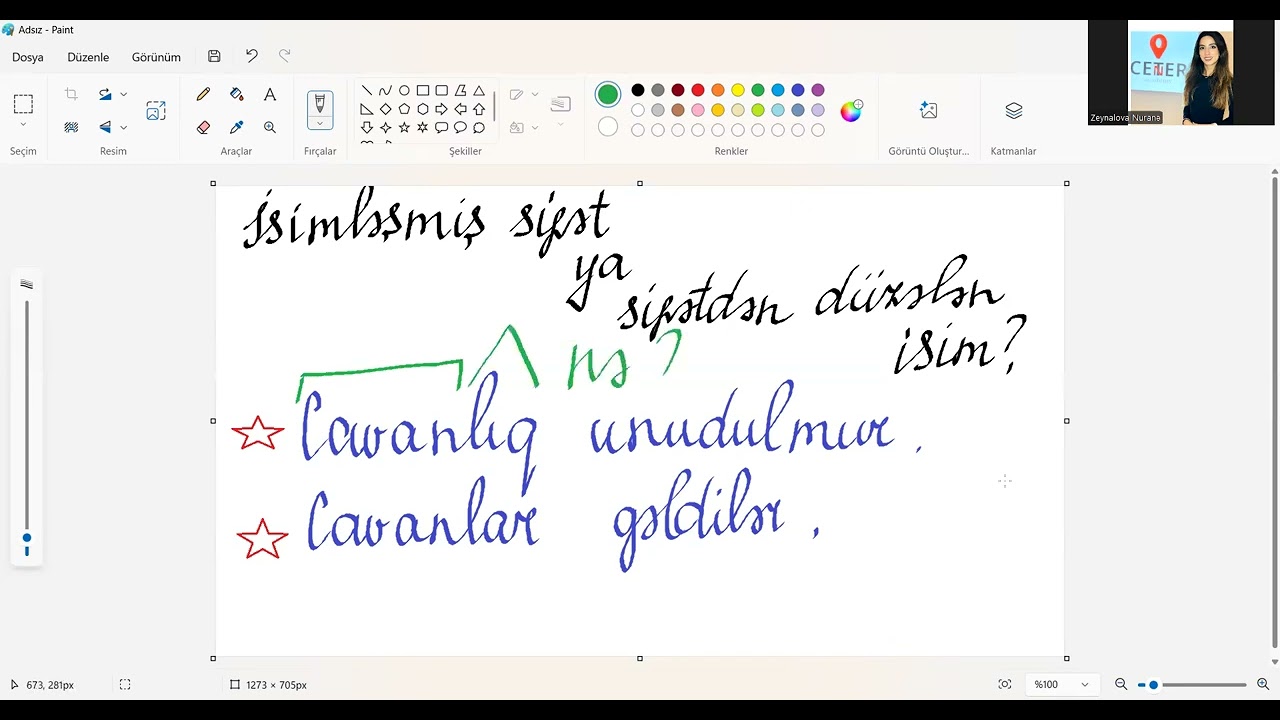 Adsız - Paint
Dosya Düzenle Görünüm
Seçim Resim Araçlar Fırçalar Şekiller Renkler Görüntü Oluştur... Katmanlar
CETTER
Zeynalova Nuranə
İsimləşmiş sifət
ya
sifətdən düzələn
isim?
nə?
Cavanlıq unudulmur.
Cavanlar gəldilər.
673, 281px
1273 × 705px
%100